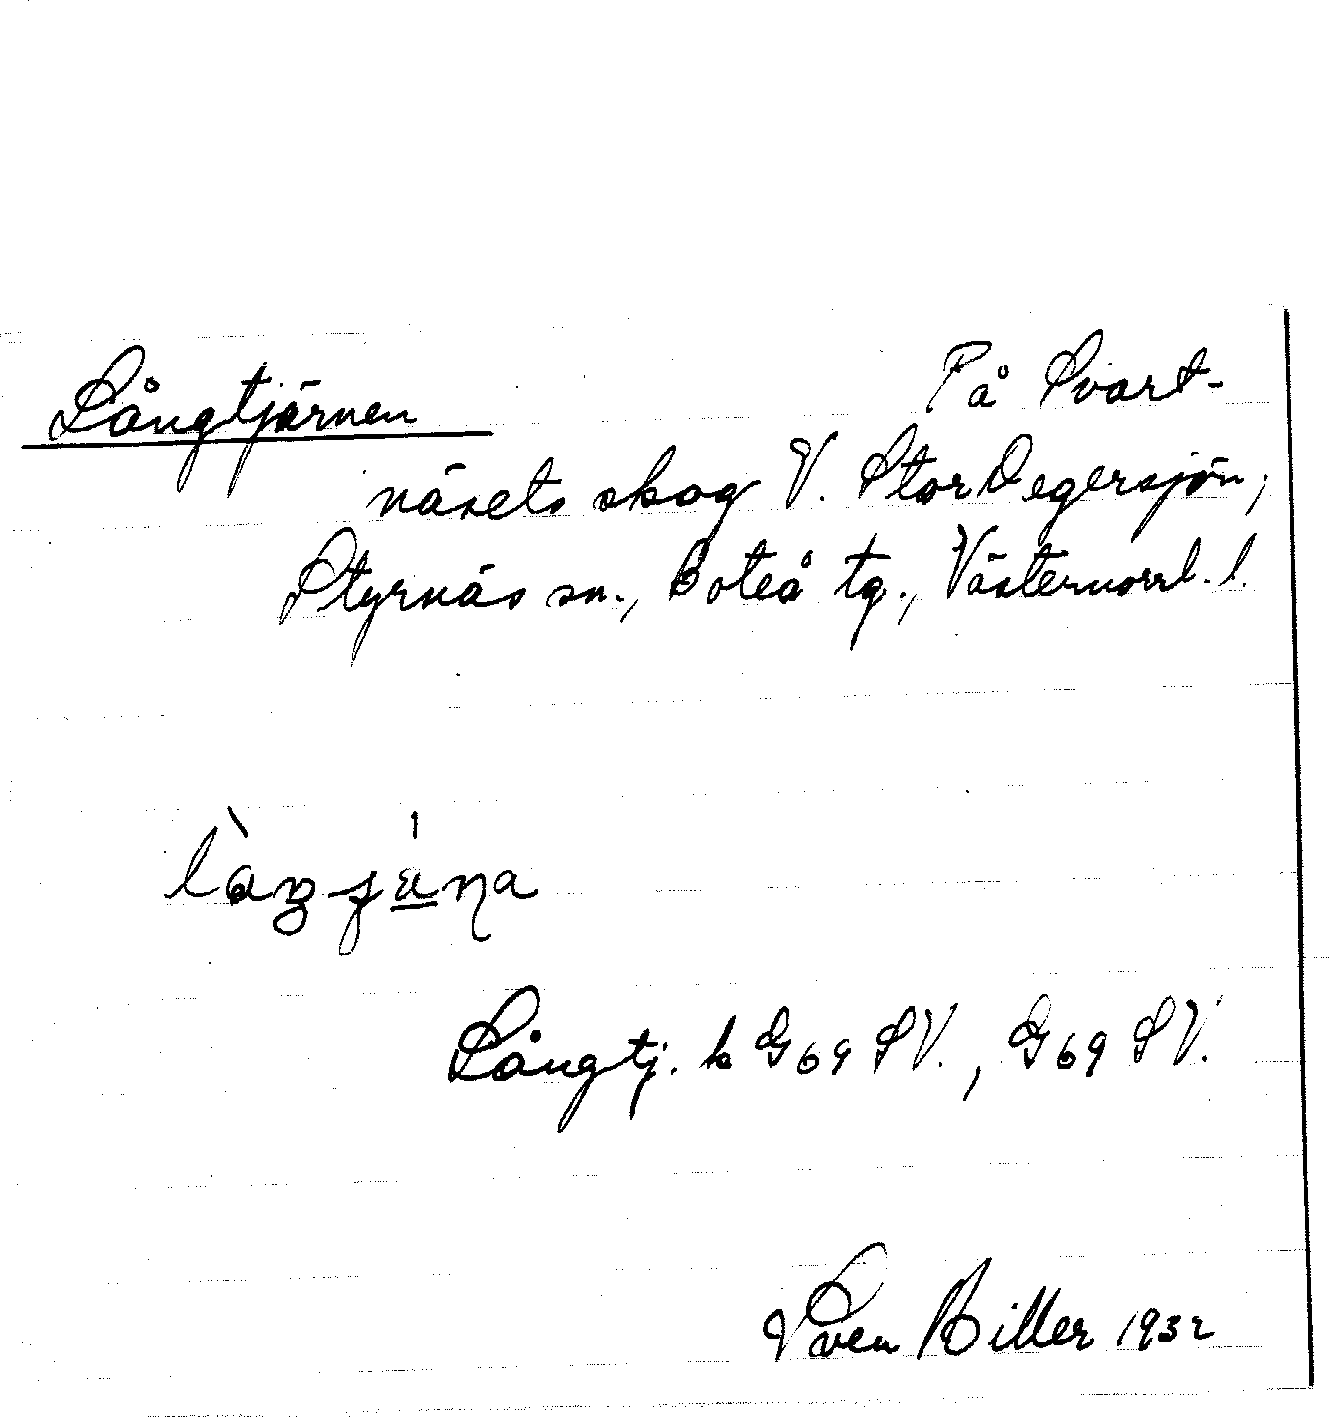 Långtjärnen På Svart-
näsets skog V. Stor Degersjön,
Styrnäs sn., Boteå tg., Västernorrl. l.
Långtj. k G69 SV., G69 SV.
Sven Biller 1932